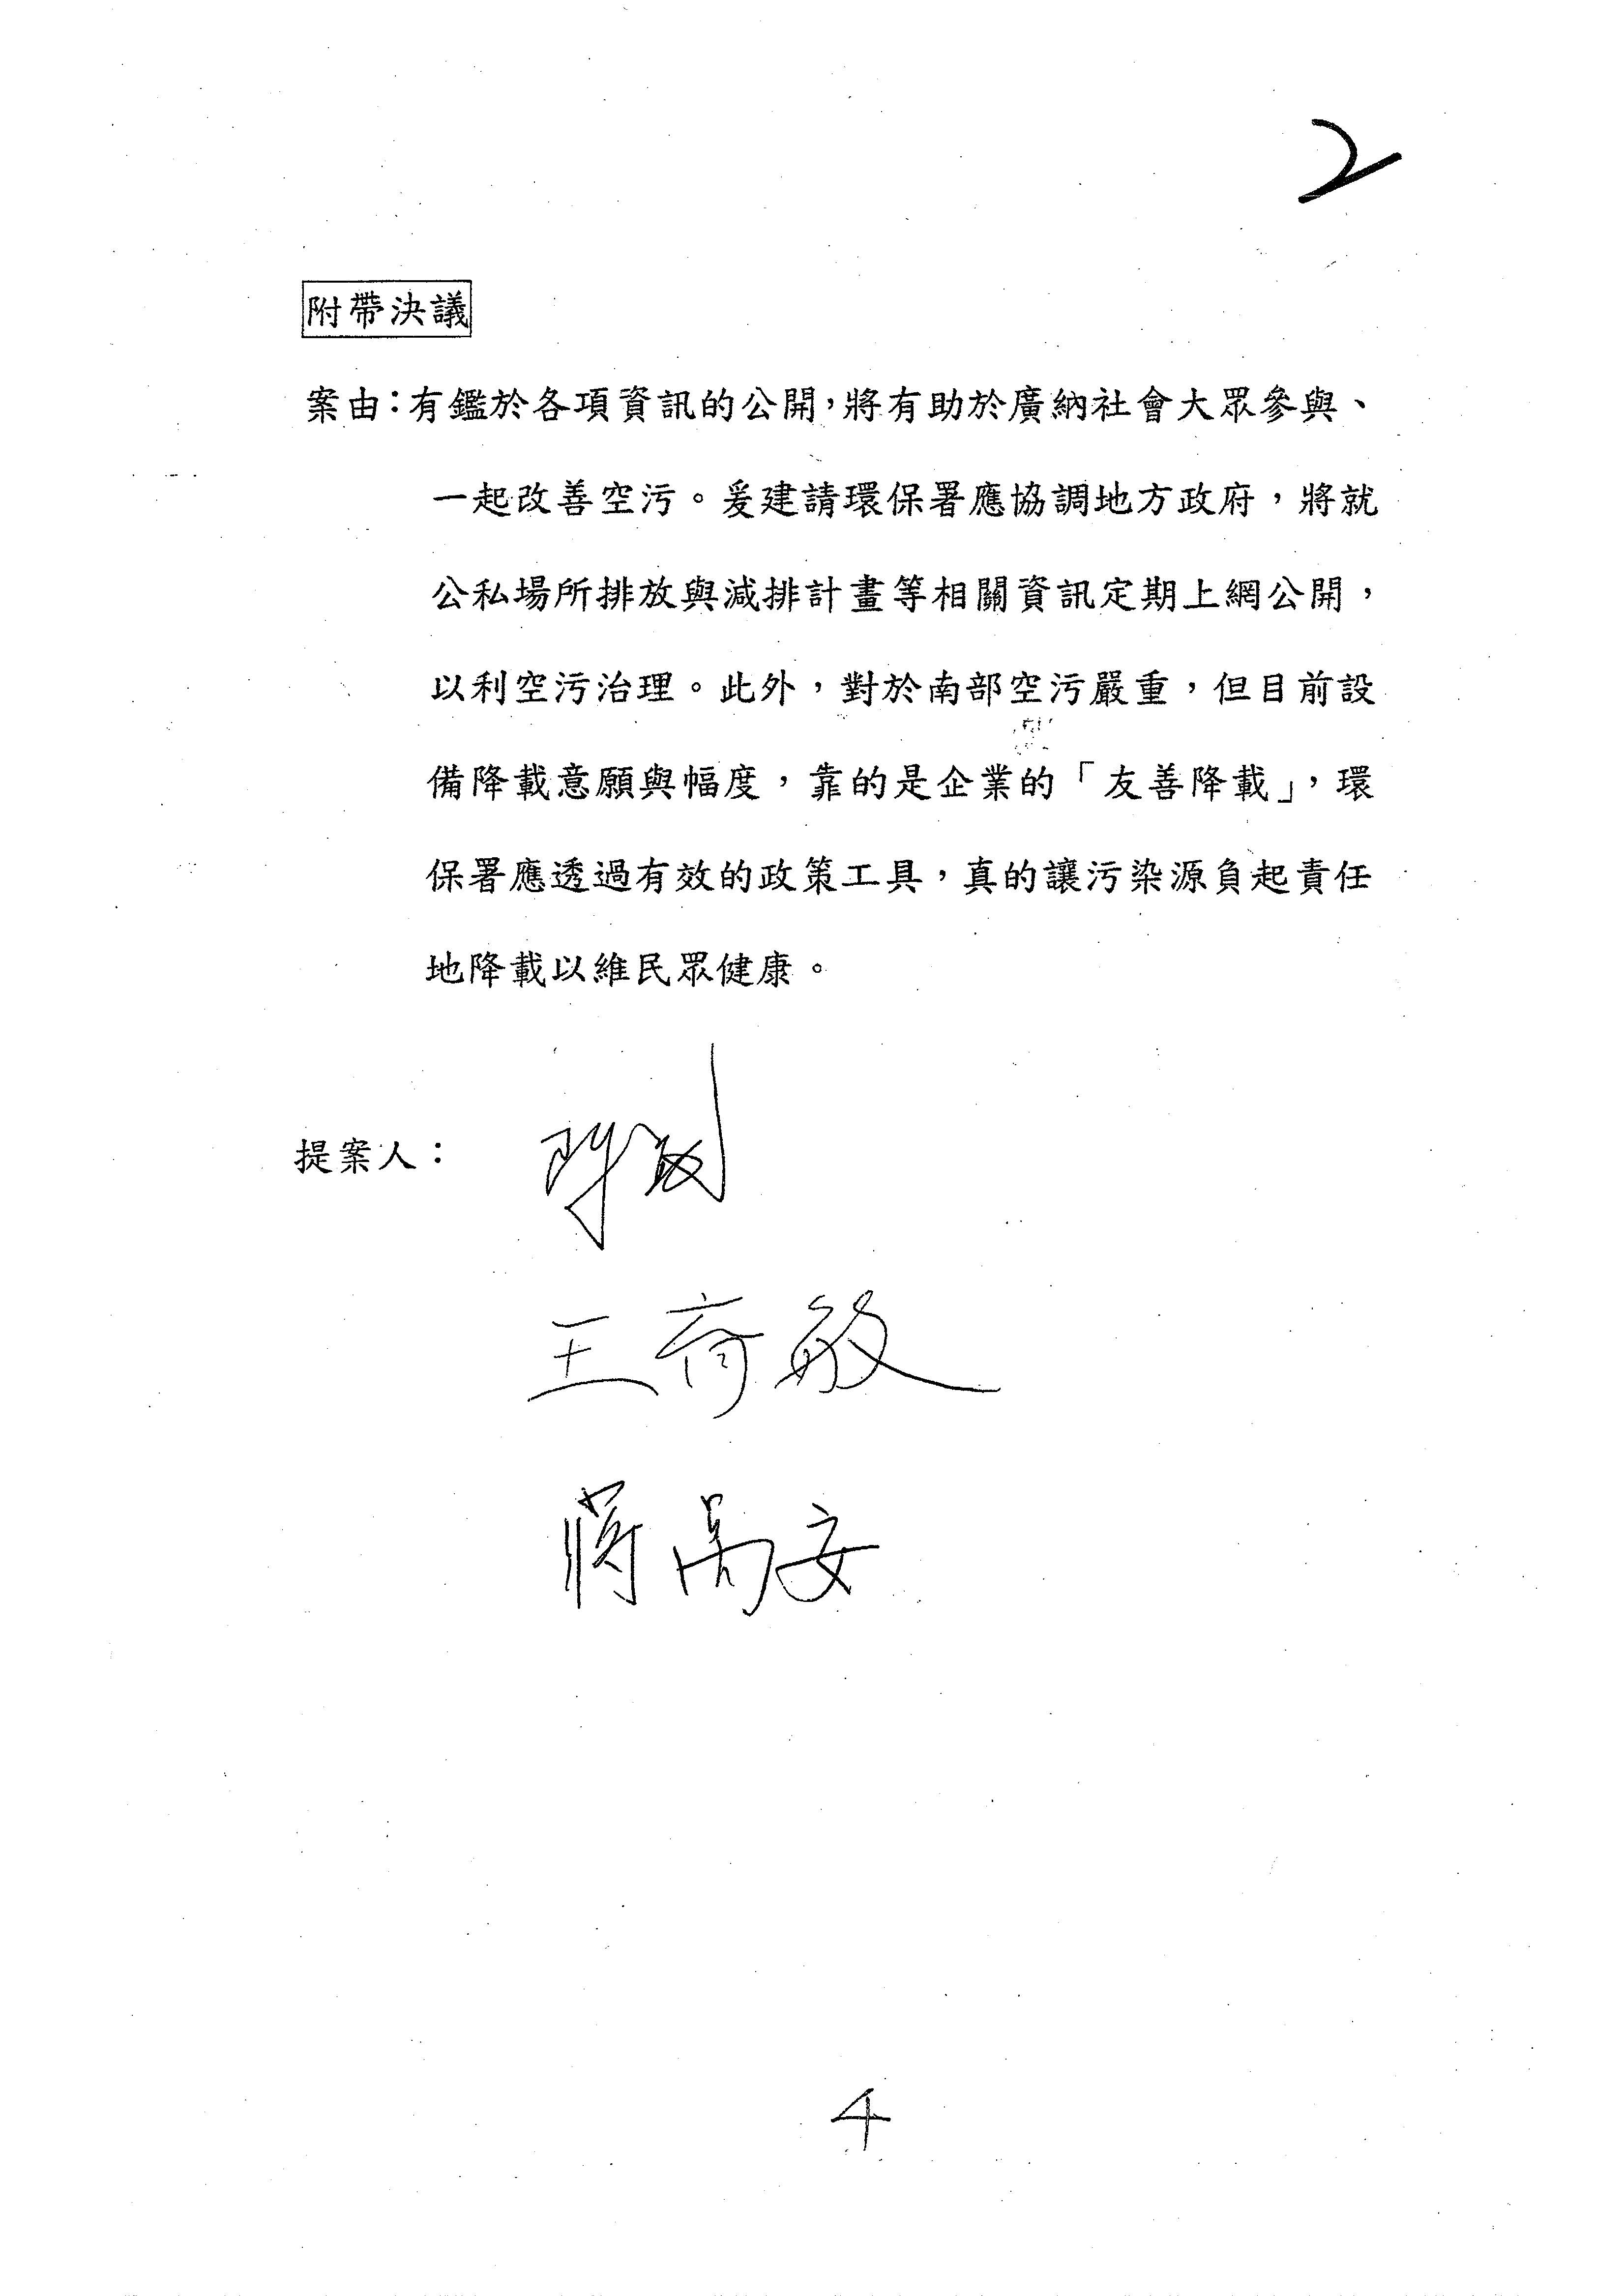 2
附帶決議
案由：有鑑於各項資訊的公開，將有助於廣納社會大眾參與、
一起改善空污。爰建請環保署應協調地方政府，將就
公私場所排放與減排計畫等相關資訊定期上網公開，
以利空污治理。此外，對於南部空污嚴重，但目前設
備降載意願與幅度，靠的是企業的「友善降載」，環
保署應透過有效的政策工具，真的讓污染源負起責任
地降載以維民眾健康。
提案人：
王育敏
蔣萬安
4